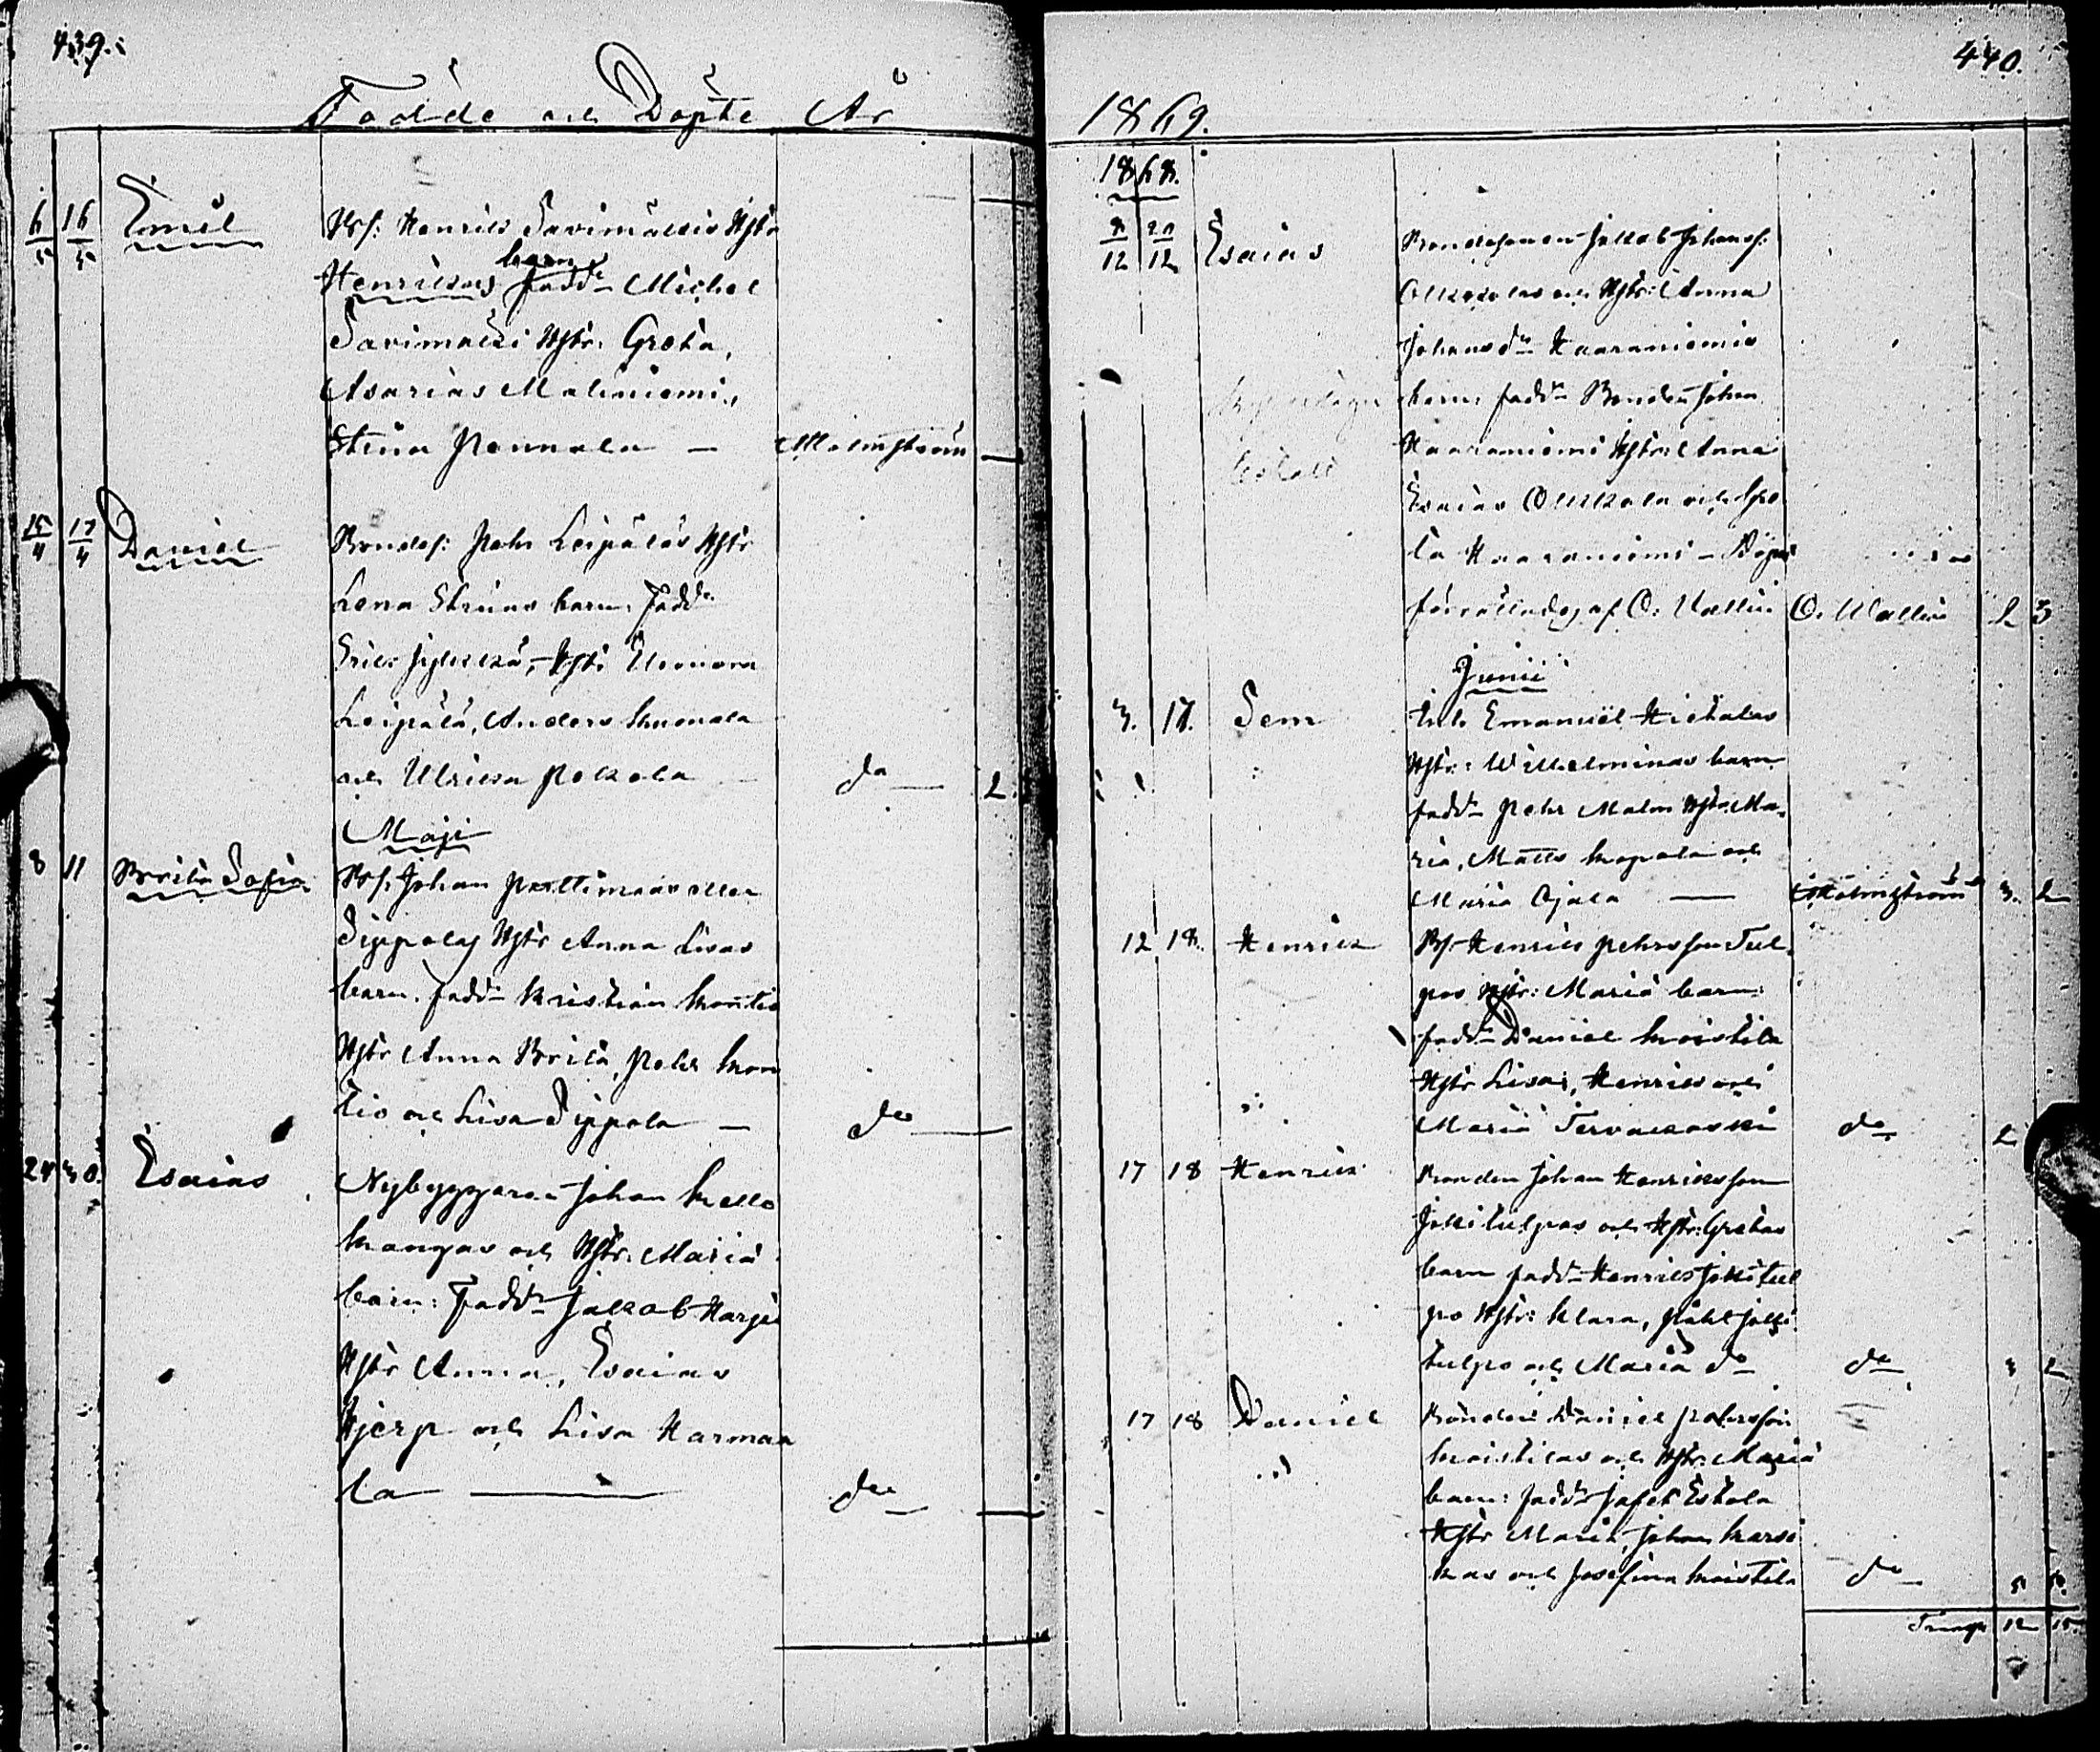 439.
Födde och Döpte År
6/5 16/5 Emil Bf: Henrik Savimäkis Hstr
Henrikas barn fadd: Michel
Savimäki Hstr: Greta,
Asarias Maliniemi,
Stina Pennala — Malmström
15/4 17/4 Daniel Bondes: Pehr Leipäläs Hstr
Lena Stinas barn. Fadd:
Erik Jylkkä, Hstr Eleonora
Leipälä, Anders Kuonala
och Ulrika Pokela — do — 2.
Maji
8 11 Brita Sofia Bs. Johan Perttimaas eller
Sippolas Hstr Anna Lisas
barn. fadd: Kristian Kontio
Hstr Anna Brita, Pehr Kon
tio och Lisa Sippola — do
24 30. Esaias Nybyggaren Johan Kello
kangas och Hstr: Maria
barn: Fadd: Jakob Harju
Hstr Anna, Esaias
Hjerp och Lisa Karma
la — do
440.
1869.
1868.
9/12 20/12 Esaias Bondesonen Jakob Johans:
Ollikalas och Hstr: Anna
Johansdr Haaraniemis
barn, fadd: Bonden Johan
Haaraniemi Hstr: Anna
Esaias Ollikala och
la Haaraniemi — Döpt
förrättades af O. Wallin O. Wallin 2 3
Junii
3. 17. Sem Inh. Emanuel Hietalas
Hstr: Wilhelminas barn
fadd: Pehr Malm Hstr: Ma-
ria, Matts Kopola och
Maria Ojala — Malmström 3. 2
12 18. Henrik Bf. Henrik Pehrsson Tul
pos Hstr: Maria barn:
fadd: Daniel Koistila
Hstr Lisa, Henrik och
Maria Tervakoski do 2
17 18 Henrik Bonden Johan Henriksson
Jokitulpos och Hstr: Gretas
barn fadd: Henrik Jokitul
po Hstr: Klara, Påhl Joki
tulpo och Maria do do 3 2
17 18 Daniel Bonden Daniel Pehrsson
Koistilas och Hstr: Maria
barn: fadd: Jafet Eskola
Hstr Maria, Johan Karsi
kas och Josefina Koistila do
12 15